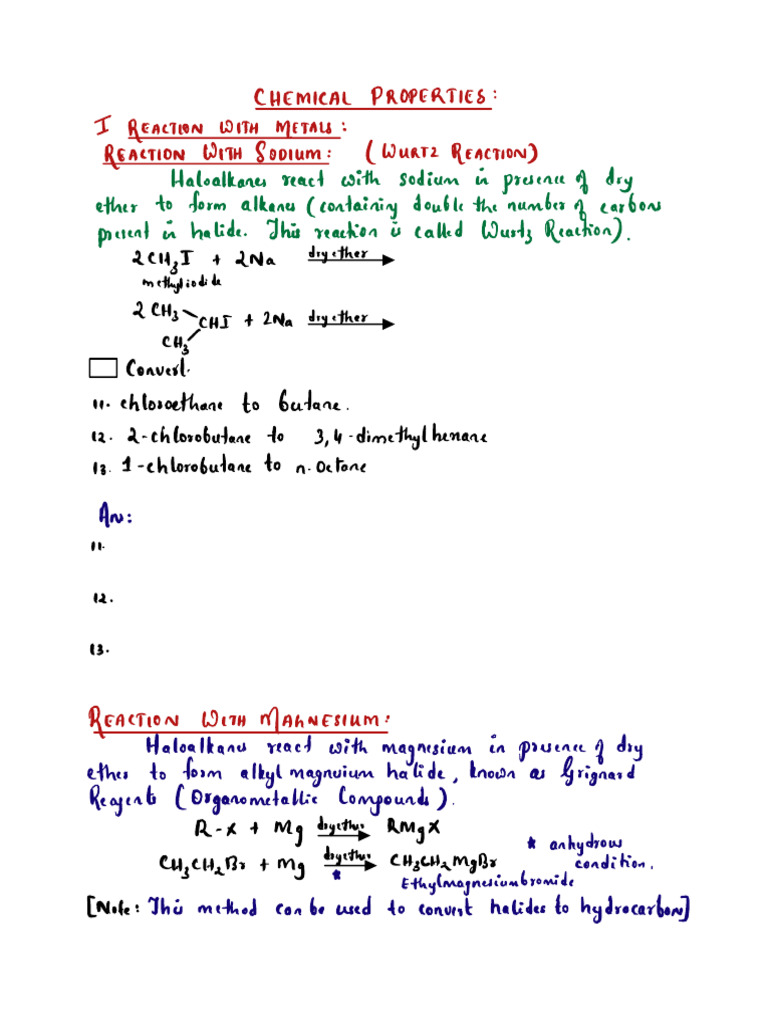 CHEMICAL PROPERTIES:
I REACTION WITH METALS:
REACTION WITH SODIUM: (WURTZ REACTION)
Haloalkanes react with sodium in presence of dry
ether to form alkanes (containing double the number of carbons
present in halide. This reaction is called Wurtz Reaction).
2CH₃I + 2Na dry ether
methyliodide
2 CH₃
CHI + 2Na dry ether
CH₃
Convert.
11. chloroethane to butane.
12. 2-chlorobutane to 3,4-dimethylhexane
13. 1-chlorobutane to n.octane
An:
11.
12.
13.
REACTION WITH MAGNESIUM:
Haloalkanes react with magnesium in presence of dry
ether to form alkyl magnesium halide, known as Grignard
Reagents (Organometallic Compounds).
R-X + Mg dryether RMgX
* anhydrous
CH₃CH₂Br + Mg dryether CH₃CH₂MgBr condition.
*
Ethylmagnesiumbromide
[Note: This method can be used to convert halides to hydrocarbon]